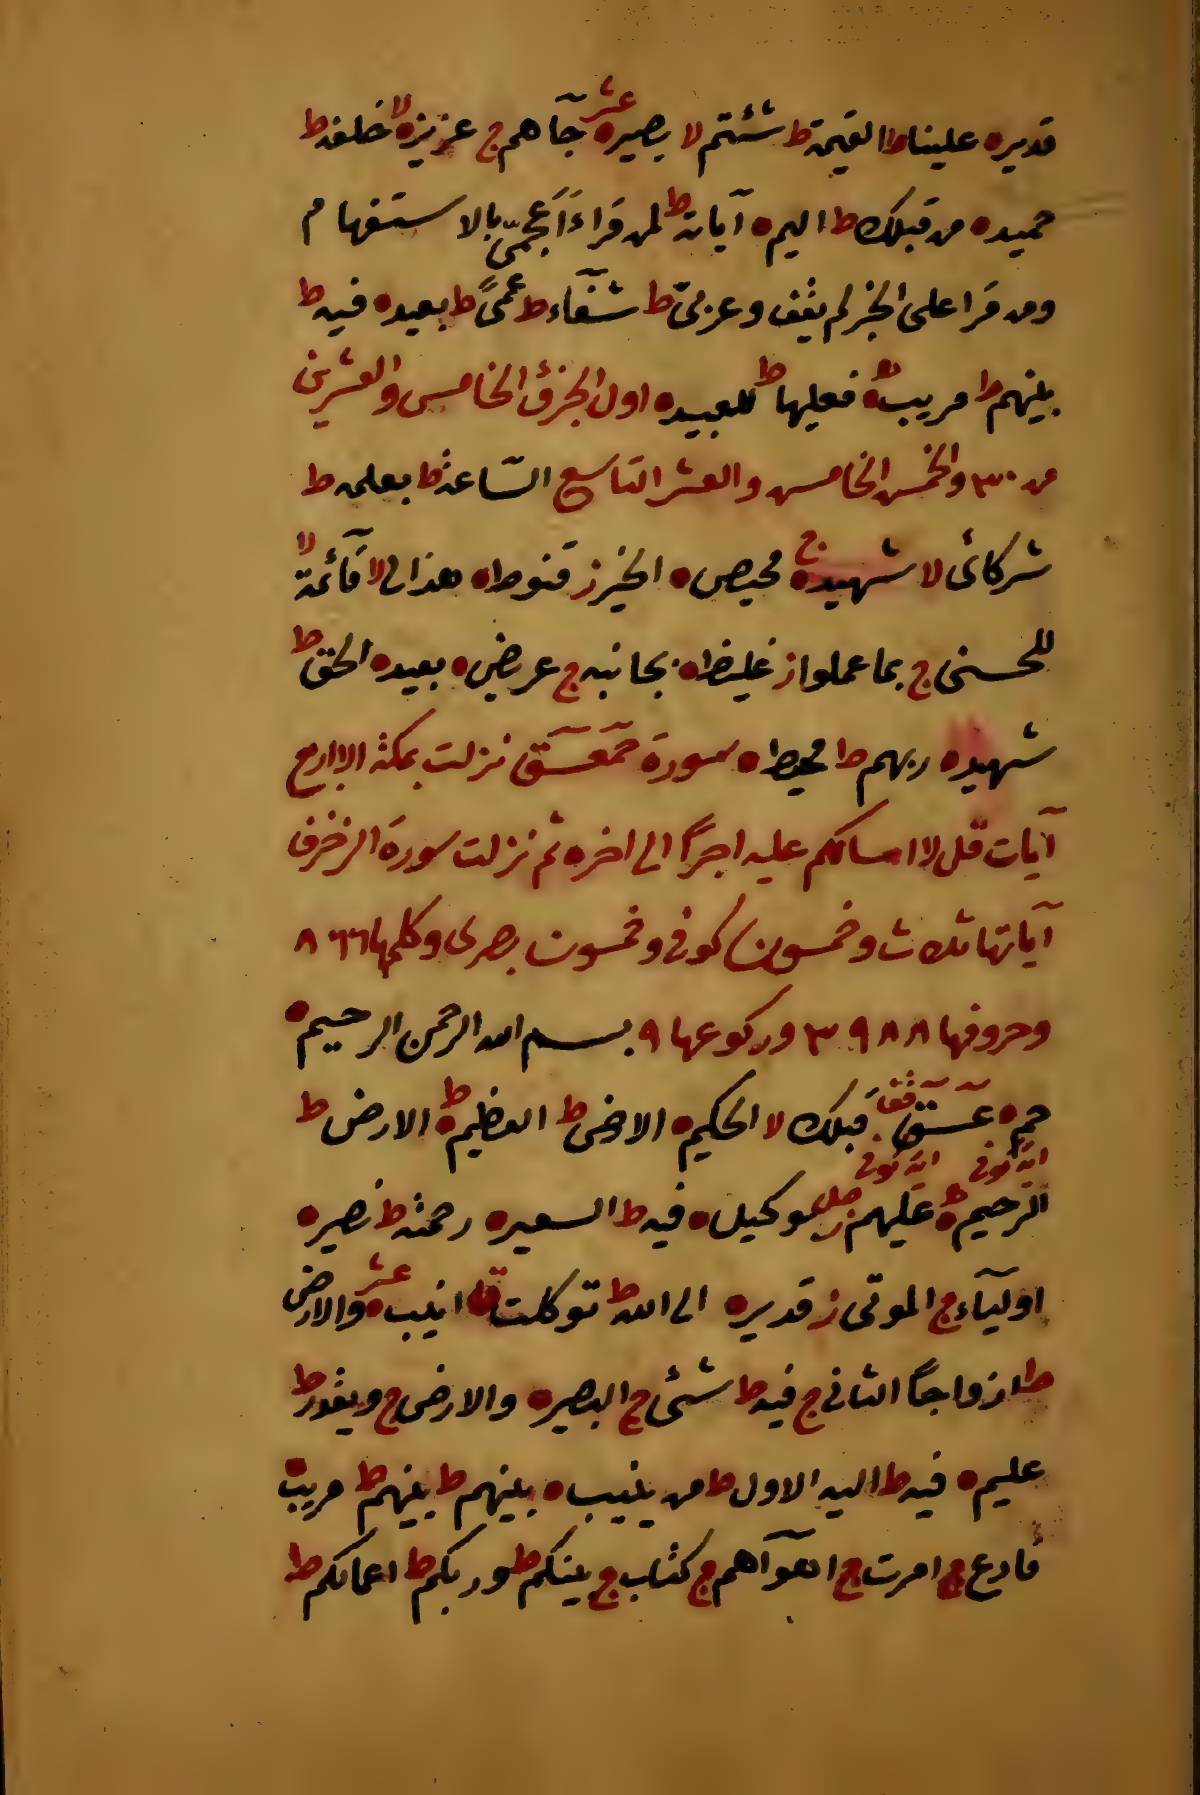 قدير ه علينا ط القيمة ط شئتم لا بصير ه عشر جآءهم ج عزيز ه لا خلفه ط
حميد ه من قبلك ط اليم ه آياته ط لمن قراءَ اَعجمىّ بالاستفهام
ومن قرا على الخبر لم يقف وعربىّ ط شفآء ط عمىً ط بعيد ه فيه ط
بينهم ط مريب ه فعليها ط للعبيد ه اول الجزؤ الخامس والعشرين
من ٣٠ والخمس الخامس والعشر التاسع السّاعة ط بعلمه ط
شركائى لا شهيد ه ج محيص ه الخير ز قنوط ه هذا لى لا قآئمة لا
للحسنى ج بما عملوا ز غليظ ه بجانبه ج عريض ه بعيد ه الحق ط
شهيد ه ربهم ط محيط ه سورة حٓمٓعٓسٓقٓ نزلت بمكة الا اربع
آيات قل لا اسالكم عليه اجرًا الى اخره ثم نزلت سورة الزخرف
آياتها ثلاث وخمسون كوفى وخمسون بصرى وكلمها ٨٦٦
وحروفها ٣٩٨٨ وركوعها ٩ بسم الله الرحمن الرحيم ه
حم ه عٓسٓقٓ ه قف قبلك لا الحكيم ه الارض ط العظيم ه ط الارض ط
اية كوفى اية كوفى
الرحيم ه عليهم ز صلى بوكيل ه فيه ط السعير ه رحمته ط نصير ه
اوليآء ج الموتى ز قدير ه الى الله ط توكلت انيب ه عشر والارض
ط ازواجًا الثانى ج فيه ط شئ ج البصير ه والارض ج ويقدر ط
عليم ه فيه ط اليه الاول ط من ينيب ه بينهم ط بينهم ط مريب ه
فادع ج امرت ج اهوآءهم ج كتاب ج بينكم ط وربكم ط اعمالكم ط